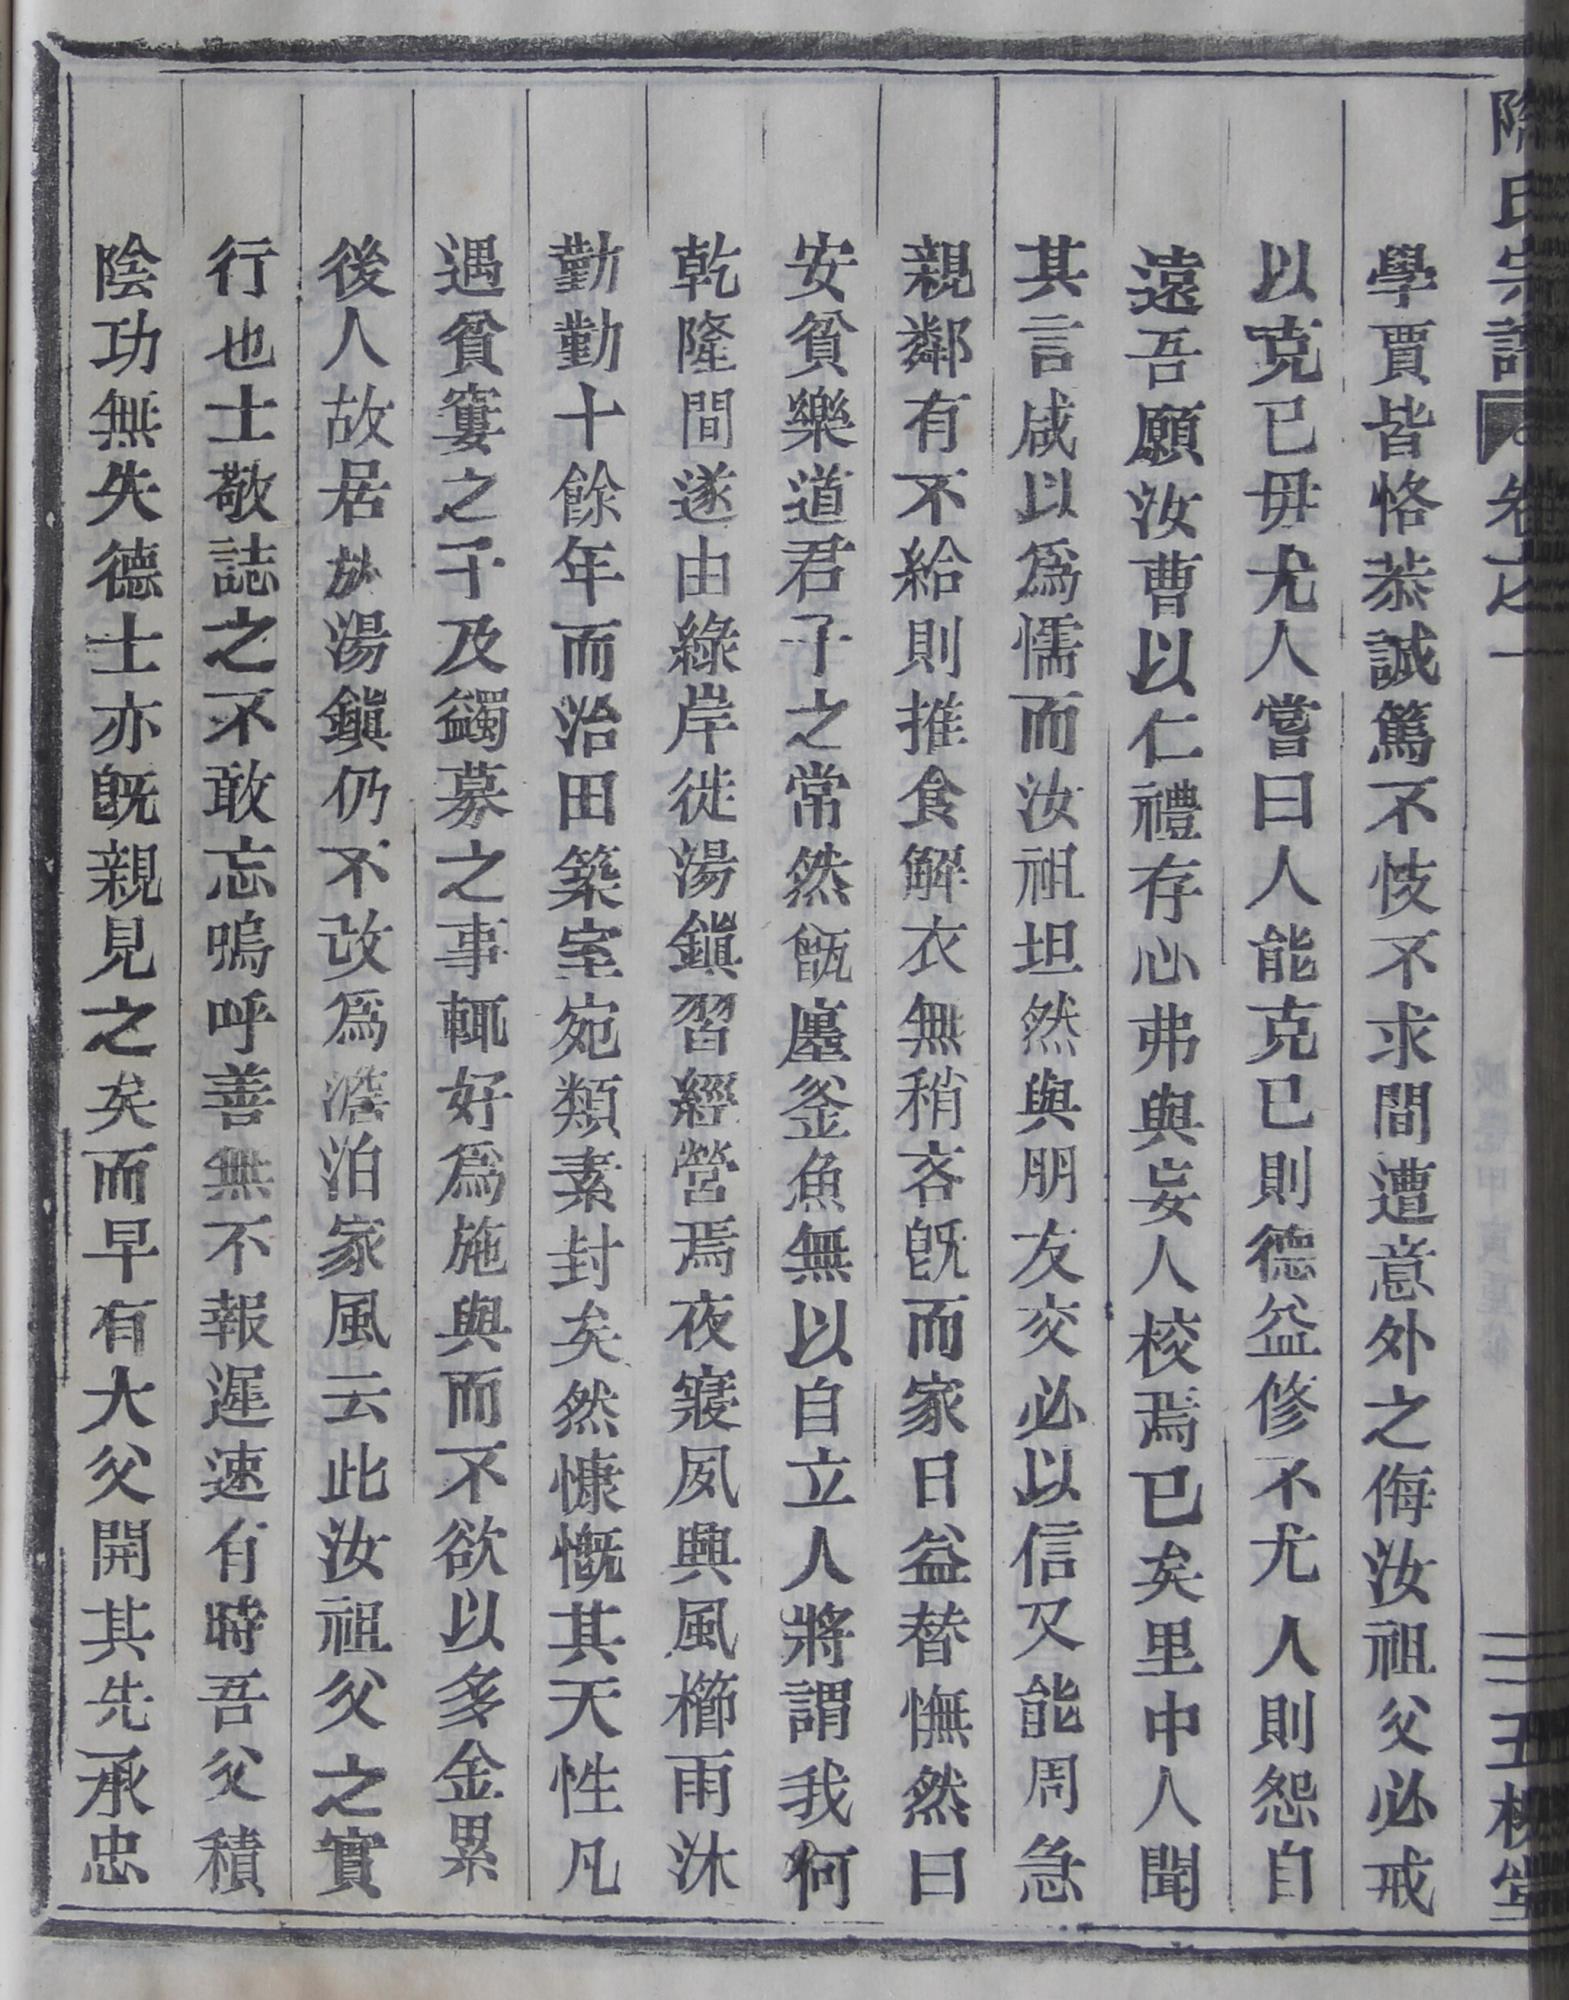 陰氏宗譜 卷之一 五柳堂
學賈皆恪恭誠篤不忮不求間遭意外之侮汝祖父必戒
以克已毋尤人嘗曰人能克已則德益修不尤人則怨自
遠吾願汝曹以仁禮存心弗與妄人校焉已矣里中人聞
其言咸以爲懦而汝祖坦然與朋友交必以信又能周急
親鄰有不給則推食解衣無稍吝旣而家日益替憮然曰
安貧樂道君子之常然甑塵釜魚無以自立人將謂我何
乾隆間遂由綠岸徙湯鎭習經營焉夜寢夙興風櫛雨沐
勤勤十餘年而治田築室宛類素封矣然慷慨其天性凡
遇貧窶之子及蠲募之事輒好爲施與而不欲以多金累
後人故居於湯鎭仍不改爲澹泊家風云此汝祖父之實
行也士敬誌之不敢忘嗚呼善無不報遲速有時吾父積
陰功無失德士亦旣親見之矣而早有大父開其先承忠